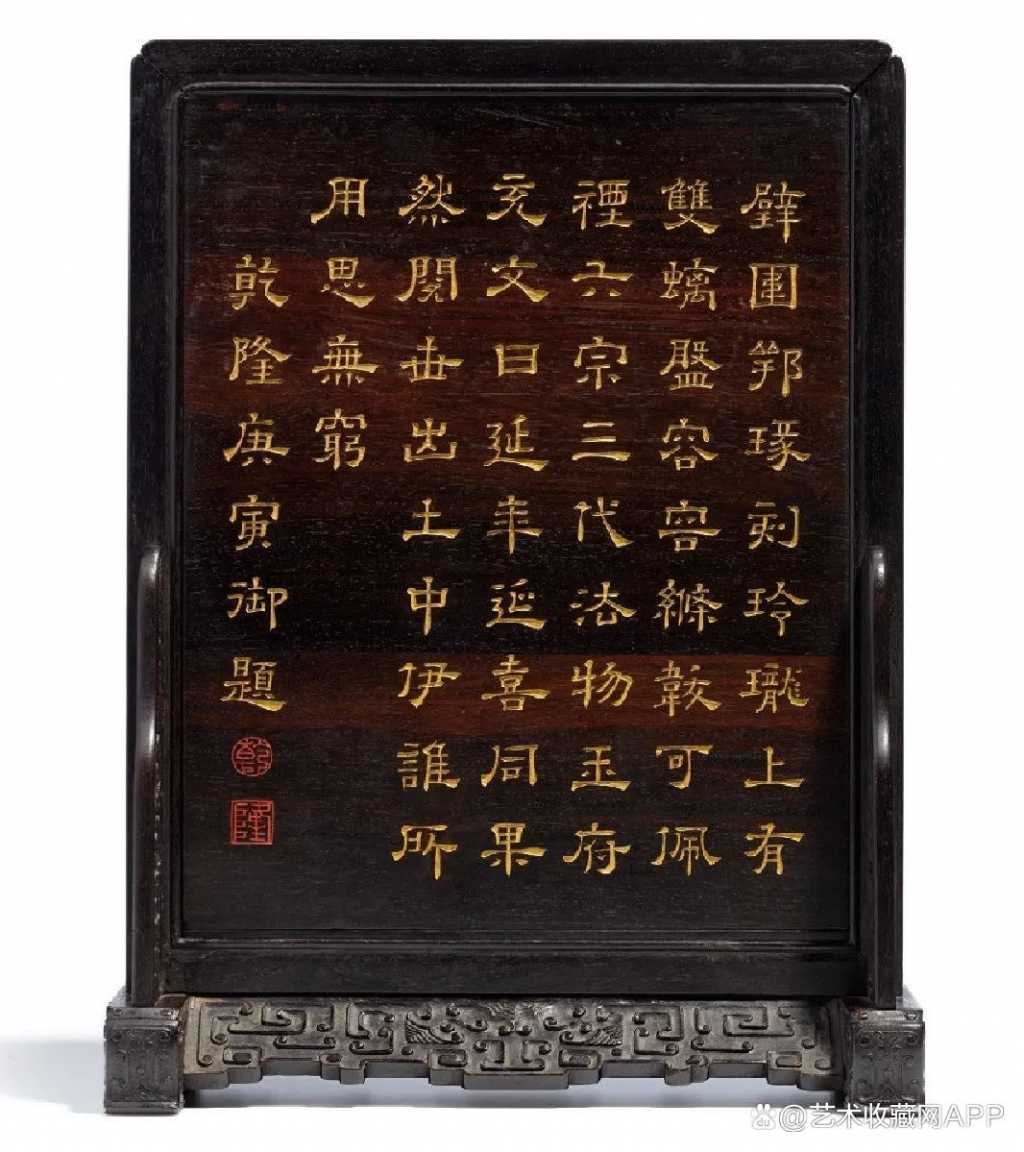 璧圍瑑刻玲瓏上有
雙螭盤容容縧韍可佩
禋六宗三代法物玉府
充文曰延年延喜同果
然閱世出土中伊誰所
用思無窮
乾隆庚寅御題
乾
隆
@艺术收藏网APP